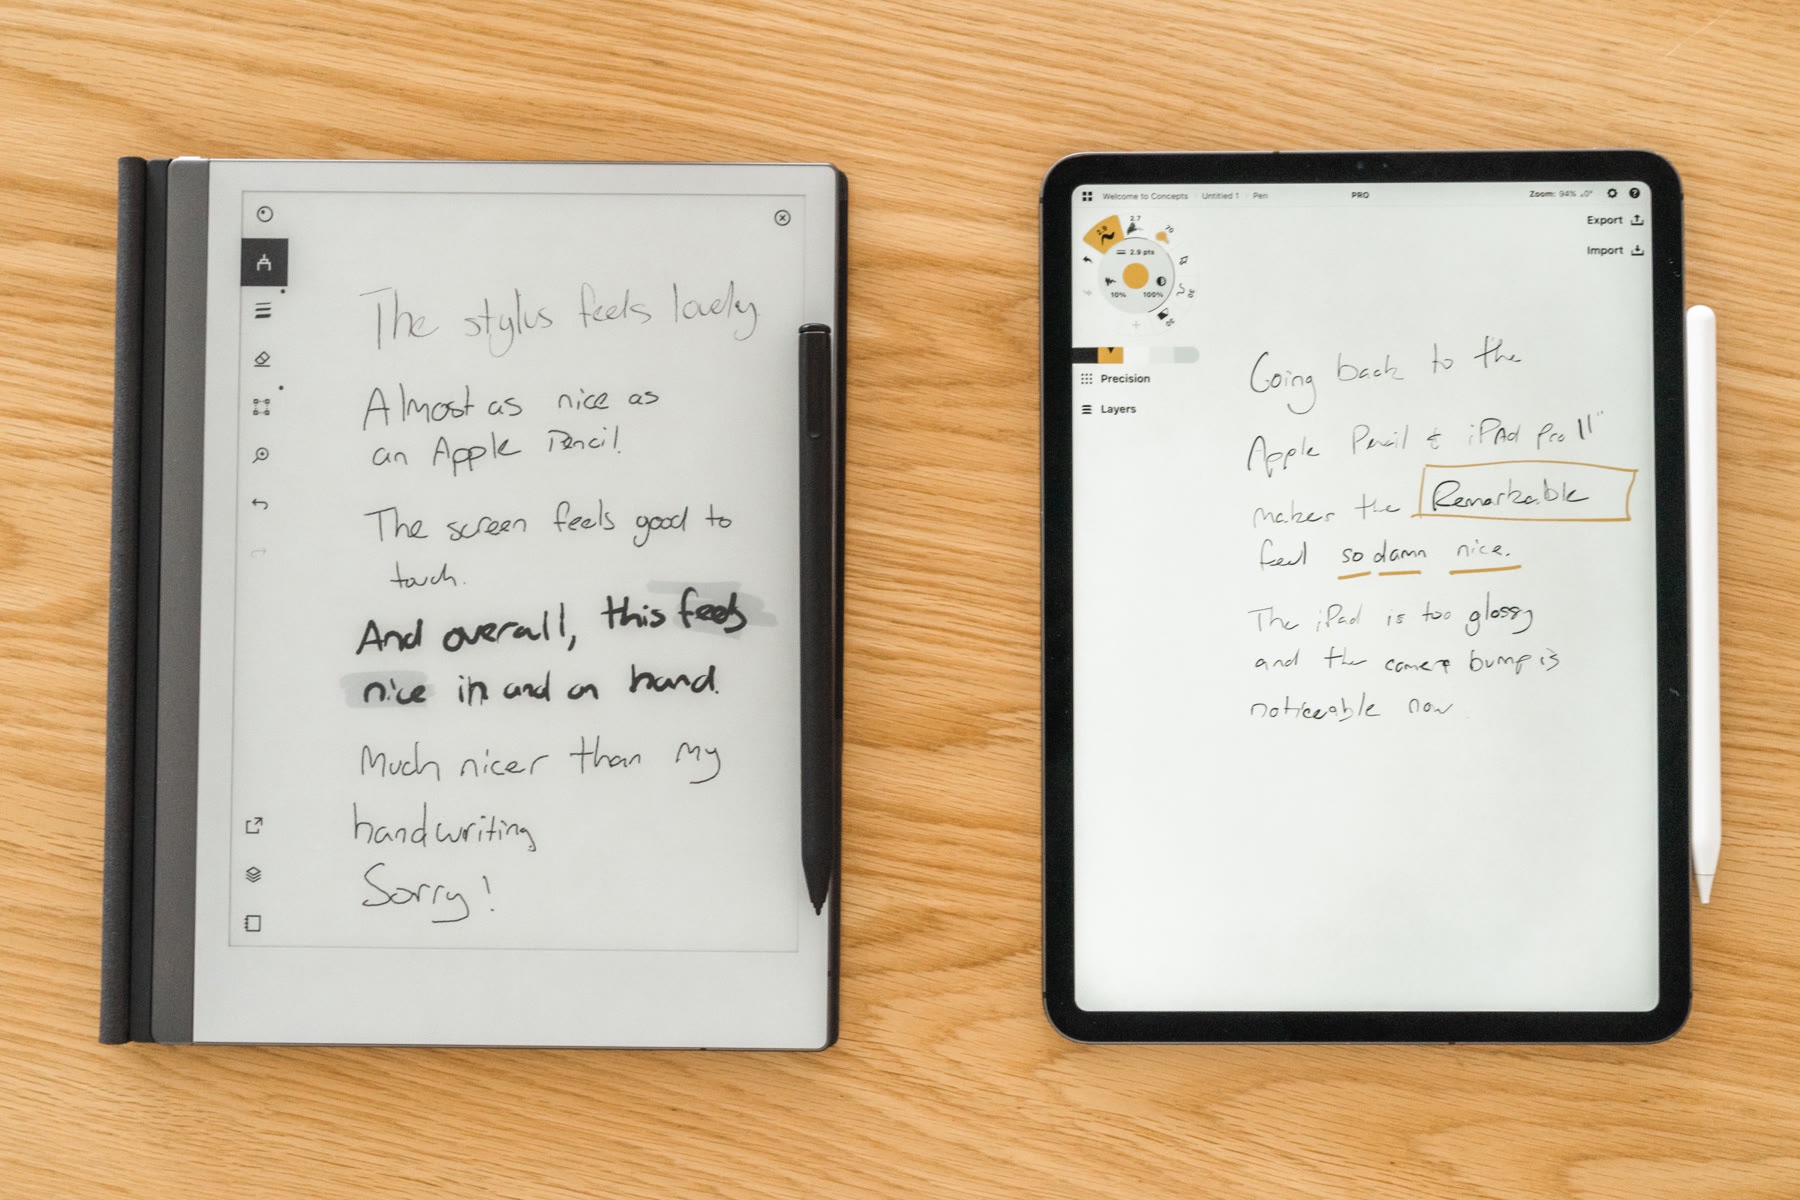 The stylus feels lovely
Almost as nice as
an Apple Pencil.
The screen feels good to
touch.
And overall, this feels
nice in and on hand.
Much nicer than my
handwriting
Sorry!
Welcome to Concepts Untitled 1 Pen
PRO
Zoom: 94% 0°
Export
Import
2.9
2.7
70
2.9 pts
10% 100%
Precision
Layers
Going back to the
Apple Pencil & iPad Pro 11"
makes the Remarkable
feel so damn nice.
The iPad is too glossy
and the camera bump is
noticeable now.